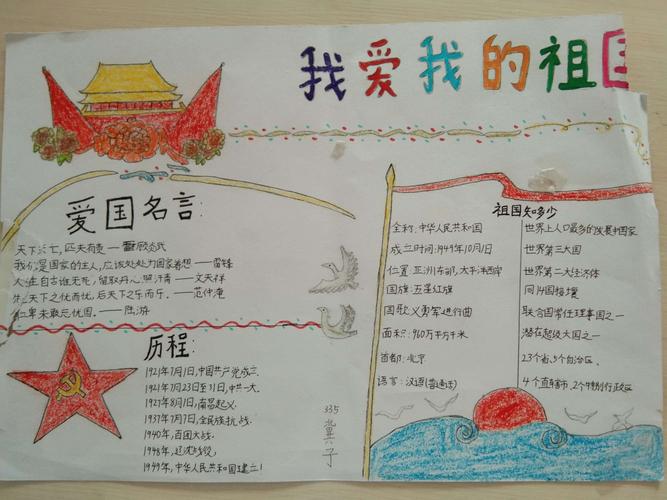 我爱我的祖国
爱国名言:
天下兴亡,匹夫有责——顾炎武
我们是国家的主人,应该处处为国家着想——雷锋
人生自古谁无死,留取丹心照汗青——文天祥
先天下之忧而忧,后天下之乐而乐。——范仲淹
位卑未敢忘忧国。——陆游
历程:
1921年7月1日,中国共产党成立
1921年7月23日至31日,中共一大.
1927年8月1日,南昌起义.
1937年7月7日,全民族抗战.
1940年,百团大战.
1948年,辽沈战役
1949年,中华人民共和国建立!
335
冀子
祖国知多少
全称:中华人民共和国
成立时间:1949年10月1日
位置:亚洲东部,太平洋西岸
国旗:五星红旗
国歌:义勇军进行曲
面积:960万平方千米
首都:北京
语言:汉语(普通话)
世界上人口最多的发展中国家
世界第三大国
世界第二大经济体
同14国接壤
联合国常任理事国之一
潜在超级大国之一
23个省、5个自治区、
4个直辖市、2个特别行政区